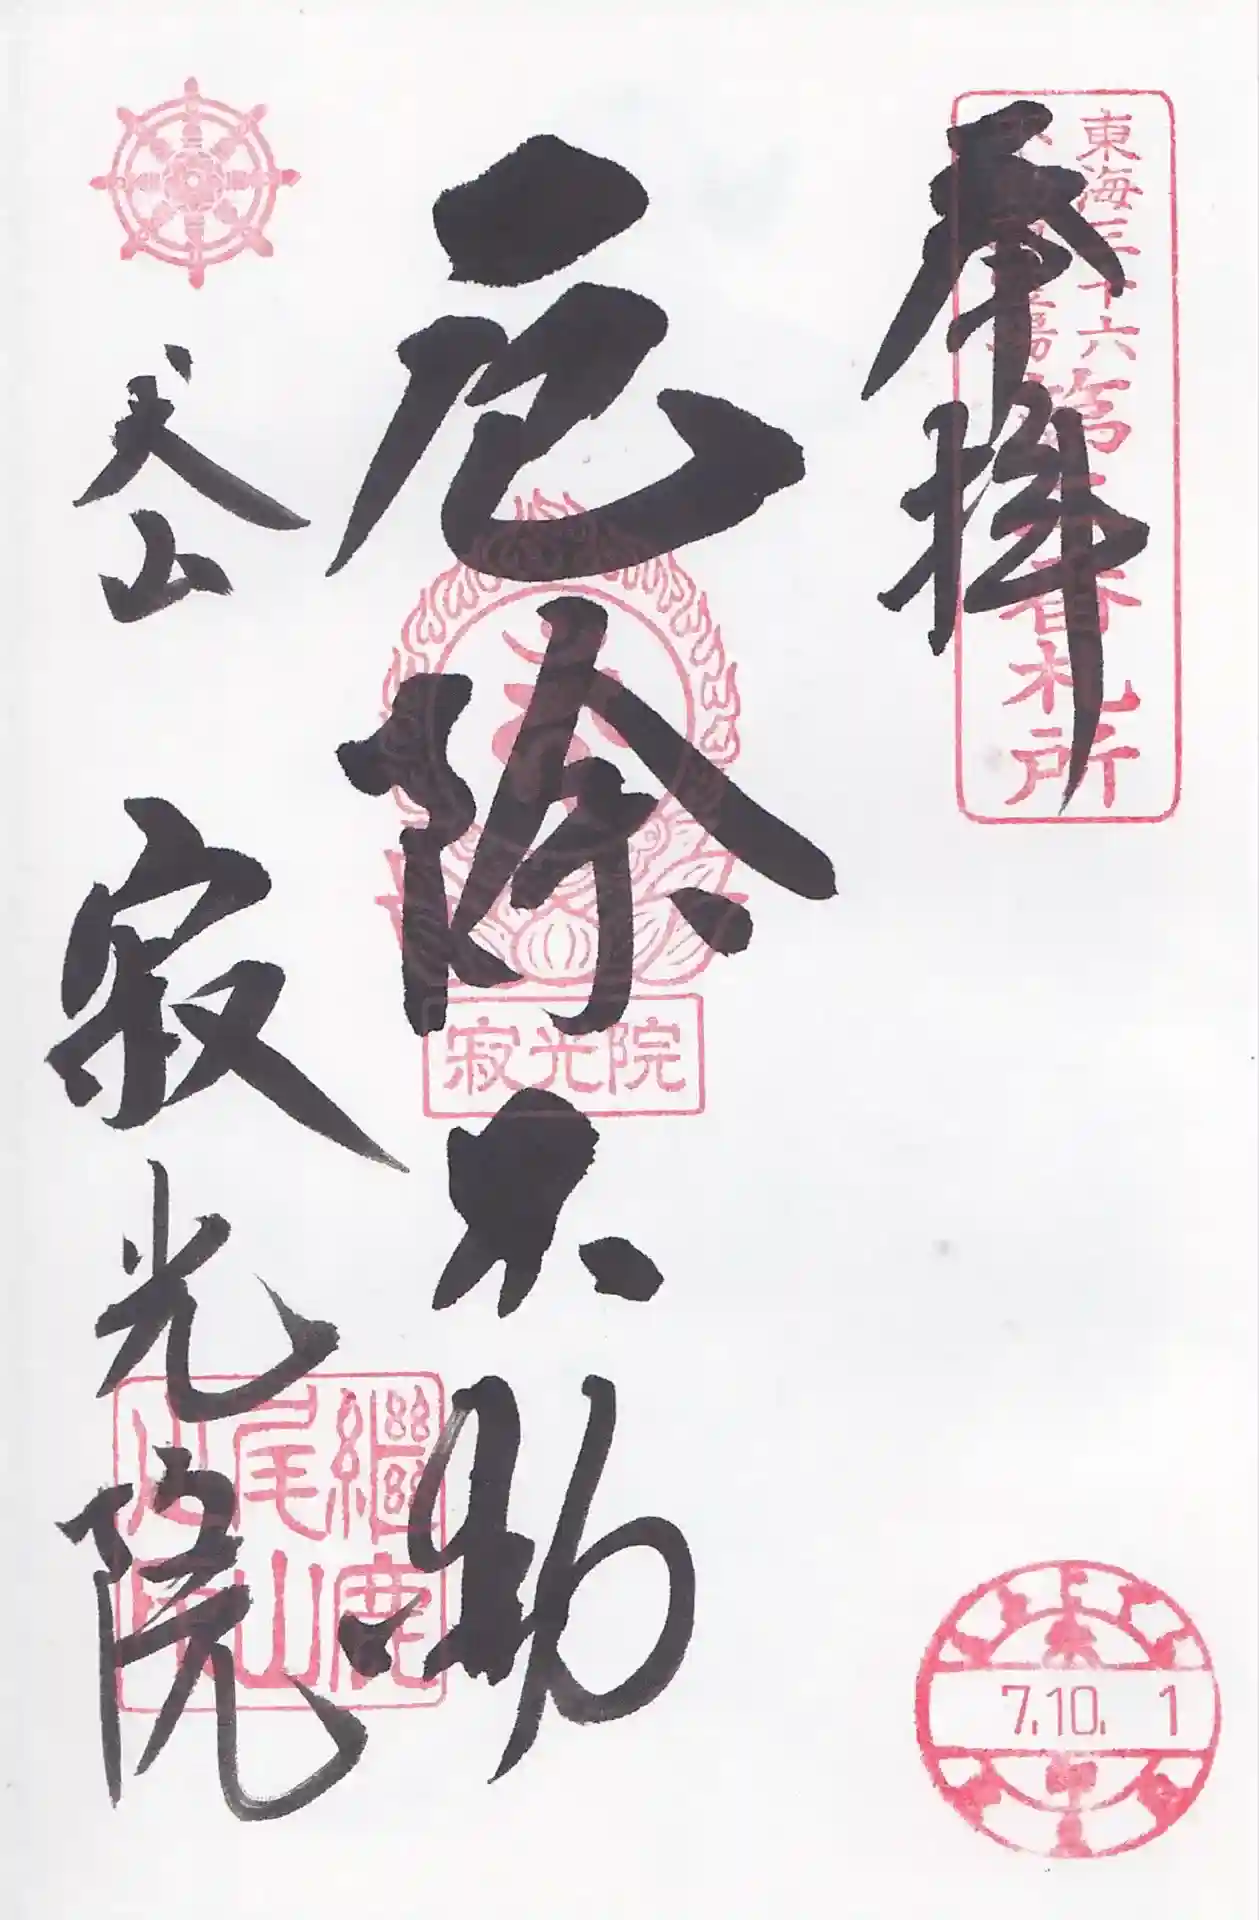 奉拝
東海三十六
不動尊霊場
第 番札所
厄除不動
寂光院
犬山 寂光院
継鹿
尾山
7.10. 1